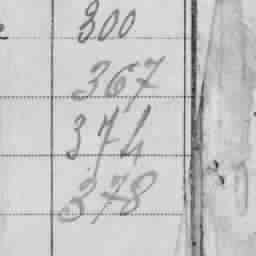 300
367
374
378